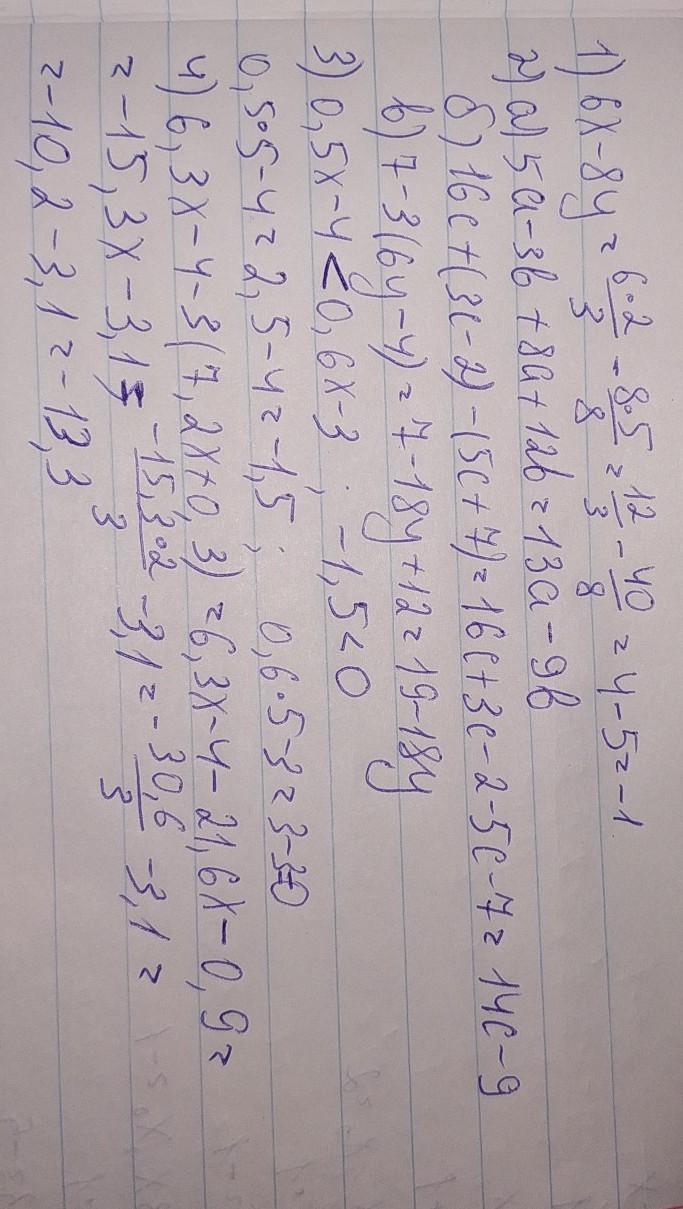 1) 6x-8y = 6·2/3 - 8·5/8 = 12/3 - 40/8 = 4-5=-1
2) а) 5a-3b+8a+12b=13a-9b
б) 16c+(3c-2)-(5c+7)=16c+3c-2-5c-7=14c-9
в) 7-3(6y-4)=7-18y+12=19-18y
3) 0,5x-4<0,6x-3 ; -1,5<0
0,5·5-4=2,5-4=-1,5 ; 0,6·5-3=3-3=0
4) 6,3x-4-3(7,2x+0,3)=6,3x-4-21,6x-0,9=
=-15,3x-3,1= -15,3·2/3 -3,1=- 30,6/3 -3,1=
=-10,2-3,1=-13,3